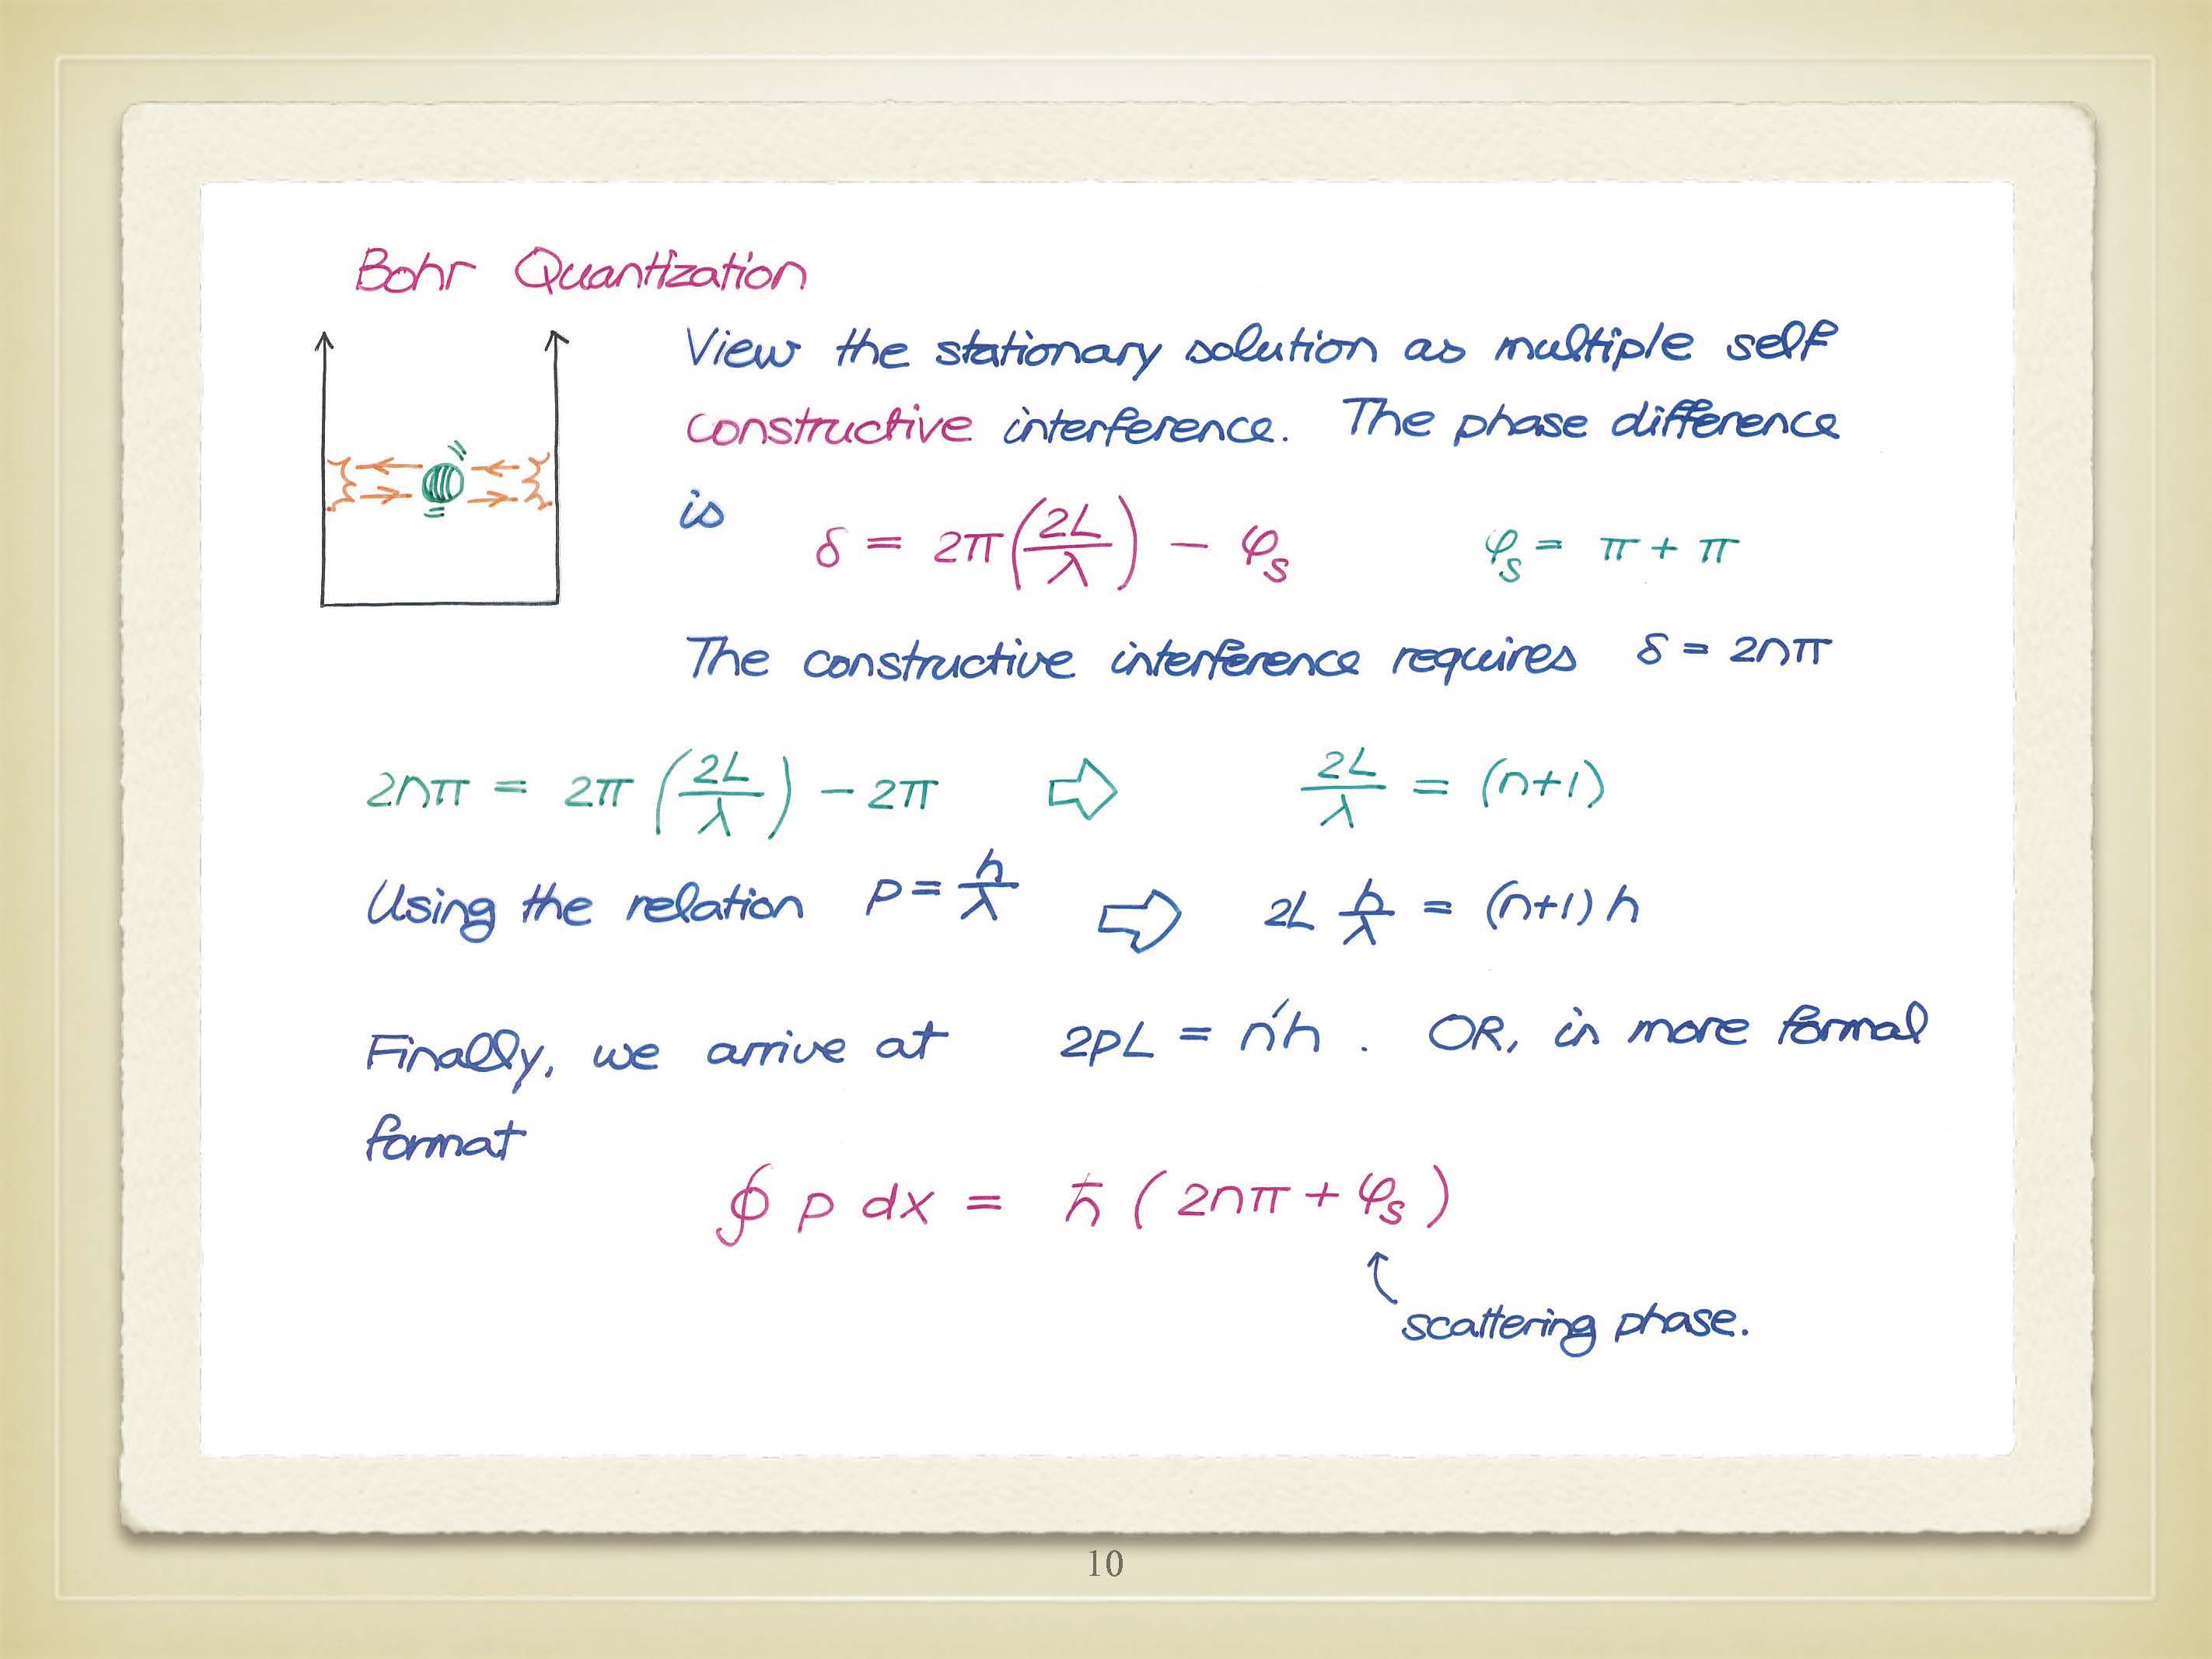 Bohr Quantization
View the stationary solution as multiple self
constructive interference. The phase difference
is δ = 2π(2L/λ) − φs φs = π + π
The constructive interference requires δ = 2nπ
2nπ = 2π (2L/λ) − 2π ⇨ 2L/λ = (n+1)
Using the relation p = h/λ ⇨ 2L h/λ = (n+1) h
Finally, we arrive at 2pL = n'h . OR, in more formal
format
∮ p dx = ℏ ( 2nπ + φs )
scattering phase.
10